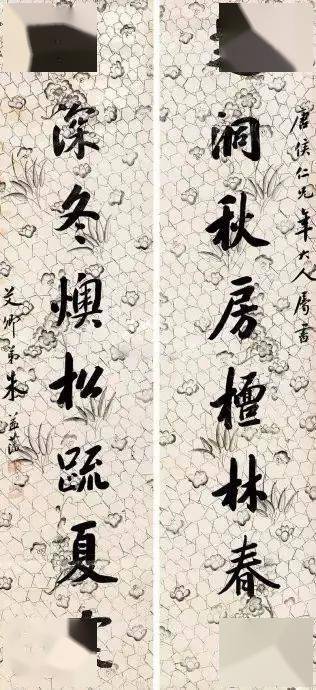 唐侯仁兄年大人屬書
洞秋房檀林春
深冬燠松疏夏
艾卿弟朱益藩